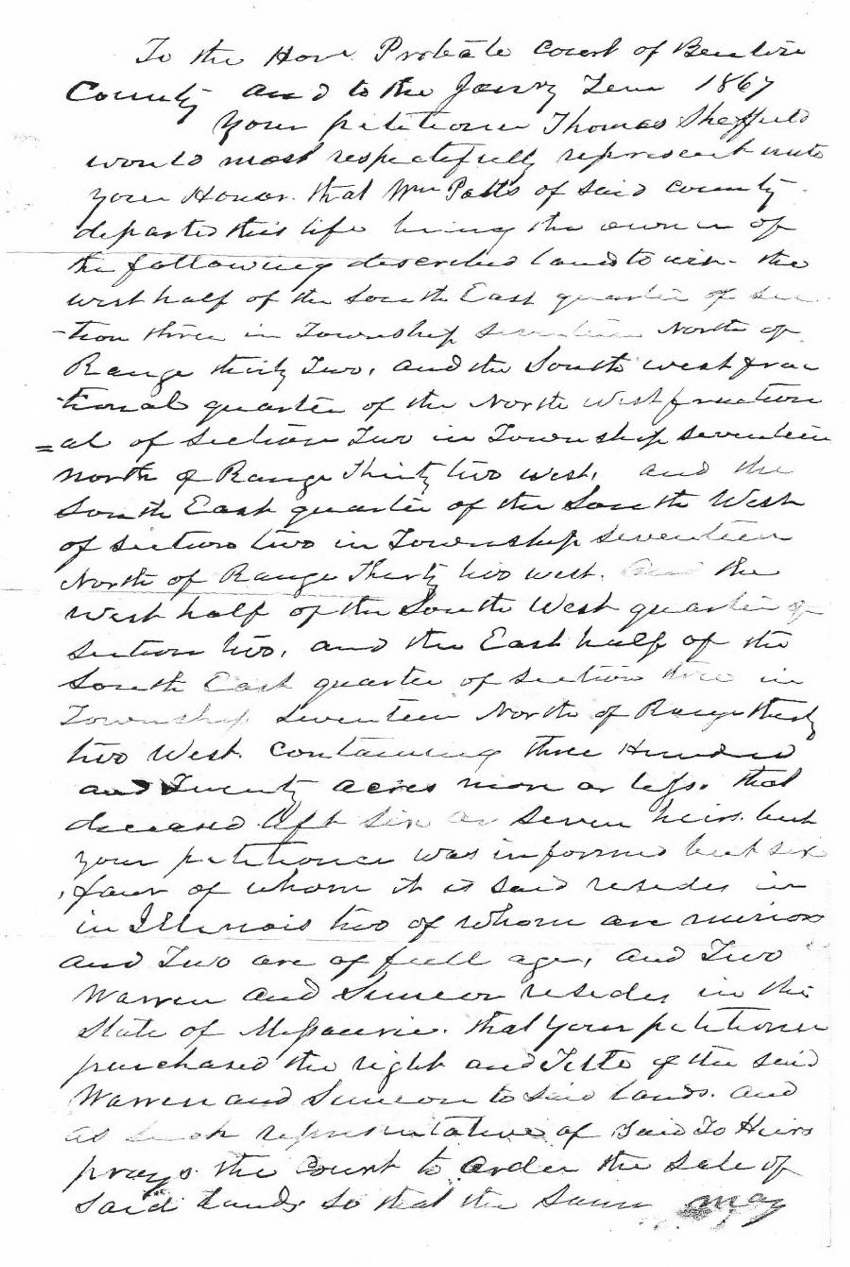 To the Honr Probate Court of Benton
County and to the Janry Term 1867
Your petitioner Thomas Sheffield
would most respectefully represent unto
your Honor that Wm Potts of said county
departed this life being the owner of
the following described lands to wit. the
west half of the South East quarter of sec
-tion three in Township seventeen North of
Range thirty Two, and the South west frac
-tional quarter of the North West fraction
=al of section Two in Township seventeen
north of Range Thirty two west, and the
South East quarter of the South West
of section two in Township seventeen
North of Range Thirty two west. and the
West half of the South West quarter of
section two, and the East half of the
South East quarter of section three in
Township seventeen North of Range thirty
two West. containing three Hundred
and Twenty acres more or less. that
deceased left six or seven heirs but
your petitioner was informed but six
four of whom it is said resides in
in Illinois two of whom are minors
and Two are of full age, and Two
Warren and Simeon resides in the
State of Missourie. that your petitioner
purchased the right and Title of the said
Warren and Simeon to said lands. and
as such representative of said To Heirs
prays the Court to order the sale of
said lands so that the same may